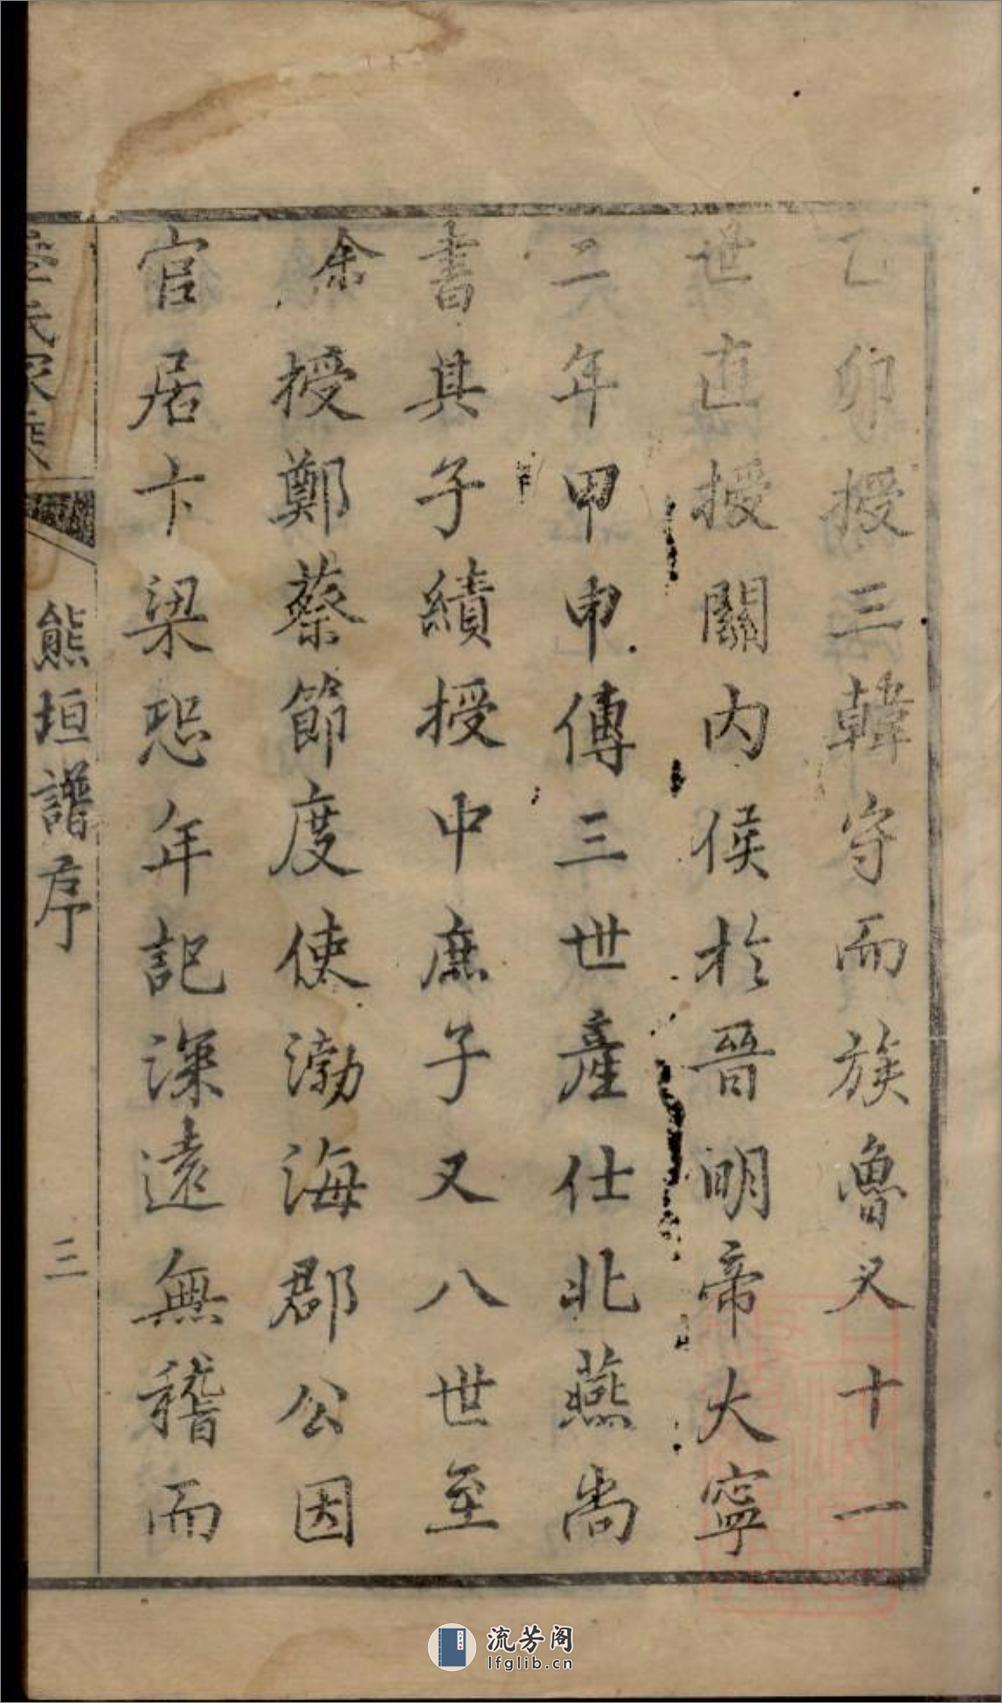 乙卯授三韓守而族魯又十一
世直授關內侯於晉明帝大寧
二年甲申傳三世產仕北燕尚
書其子績授中庶子又八世至
余授鄭蔡節度使渤海郡公因
官居卞梁恐年記深遠無稽而
氏家乘
熊垣譜序
三
流芳阁
lfglib.cn